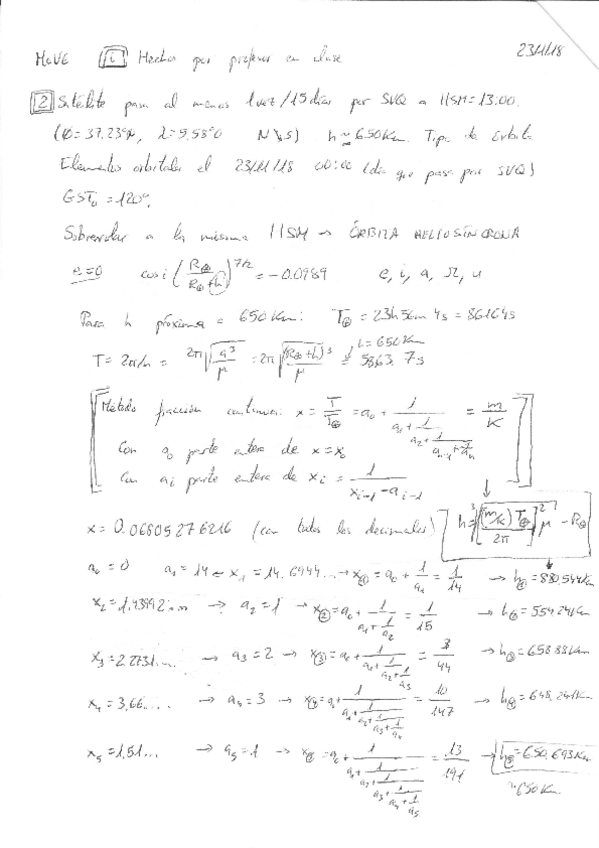 MAVE [1] Hecho por profesor en clase 23/11/18
[2] Satélite pasa al menos 1 vez/15 días por SVQ a HSM=13:00.
(Φ=37.23°N, λ=5.58°O) h≈650Km. Tipo de órbita
Elementos orbitales el 23/11/18 00:00 (día que pasa por SVQ)
GST₀=120°.
Sobrevolar a la misma HSM → ÓRBITA HELIOSÍNCRONA
e=0 cos i (R⊕/(R⊕+h))^7/2 = -0.0989 e, i, a, Ω, u
Para h próxima a 650Km: T⊕ = 23h56m 4s = 86164s
T= 2π/n = 2π√(a³/μ) = 2π√((R⊕+h)³/μ) = 5863.7s
Método fracción continua: x = T/T⊕ = a₀ + 1/(a₁+1/(a₂+1/(aₙ₋₁+1/aₙ))) = m/k
Con a₀ parte entera de x=x₀
Con ai parte entera de xi = 1/(xi-1 - ai-1)
h=∛([(m/k)T⊕/2π]² μ) - R⊕
x = 0.06805276216 (con todos los decimales)
a₀ = 0 a₁ = 14 ← x₁ = 14.6944... → x① = a₀ + 1/a₁ = 1/14 → h① = 880.544Km
x₂=1.43992... → a₂=1 → x②=a₀+1/(a₁+1/a₂) = 1/15 → h②=554.241Km
x₃=2.2731... → a₃=2 → x③=a₀+1/(a₁+1/(a₂+1/a₃)) = 3/44 → h③=658.88Km
x₄=3,66.... → a₄=3 → x④=a₀+1/(a₁+1/(a₂+1/(a₃+1/a₄))) = 10/147 → h④=648.241Km
x₅=1,51... → a₅=1 → x⑤=a₀+1/(a₁+1/(a₂+1/(a₃+1/(a₄+1/a₅)))) = 13/191 → h⑤=650.693Km
≈650Km.